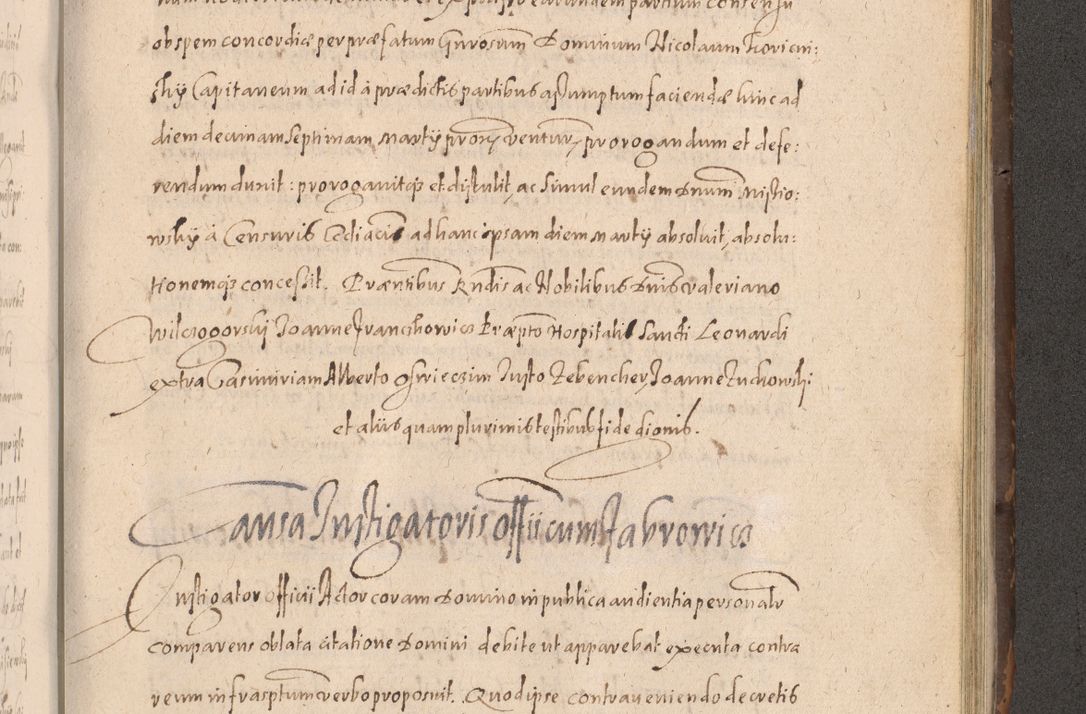 obspem concordiæ per præfatum Gnrosum Dominum Nicolaum
sky Capitaneum ad id à prædictis partibus assumptum faciendæ hinc ad
diem decimam septimam Martÿ prorogandum et defe:
rendum duxit: prorogavitqз et distulit, ac simul eundem Dnum Misio:
wsky à Censuris ad hanc ipsam diem Martÿ absolvit, absolu:
tionemqз concessit. Præntibus Rndis ac Nobilibus Dnis Valeriano
Wilczogorski Joanne Franczkowicz Præpto Hospitalis Sancti Leonardi
extra Casimiriam Alberto Oswieczim Justo Rebencher Joanne Zuchowski
et aliis quam plurimis testibus fide dignis.
Causa Instigatoris officii cum Fabrowicz
Instigator officii Actor coram Domino in publica audientia personalr
comparens oblata citatione Domini debite ut apparebat executa contra
reum infrasptum verbo proposuit. Quod ipse contraveniendo decretis